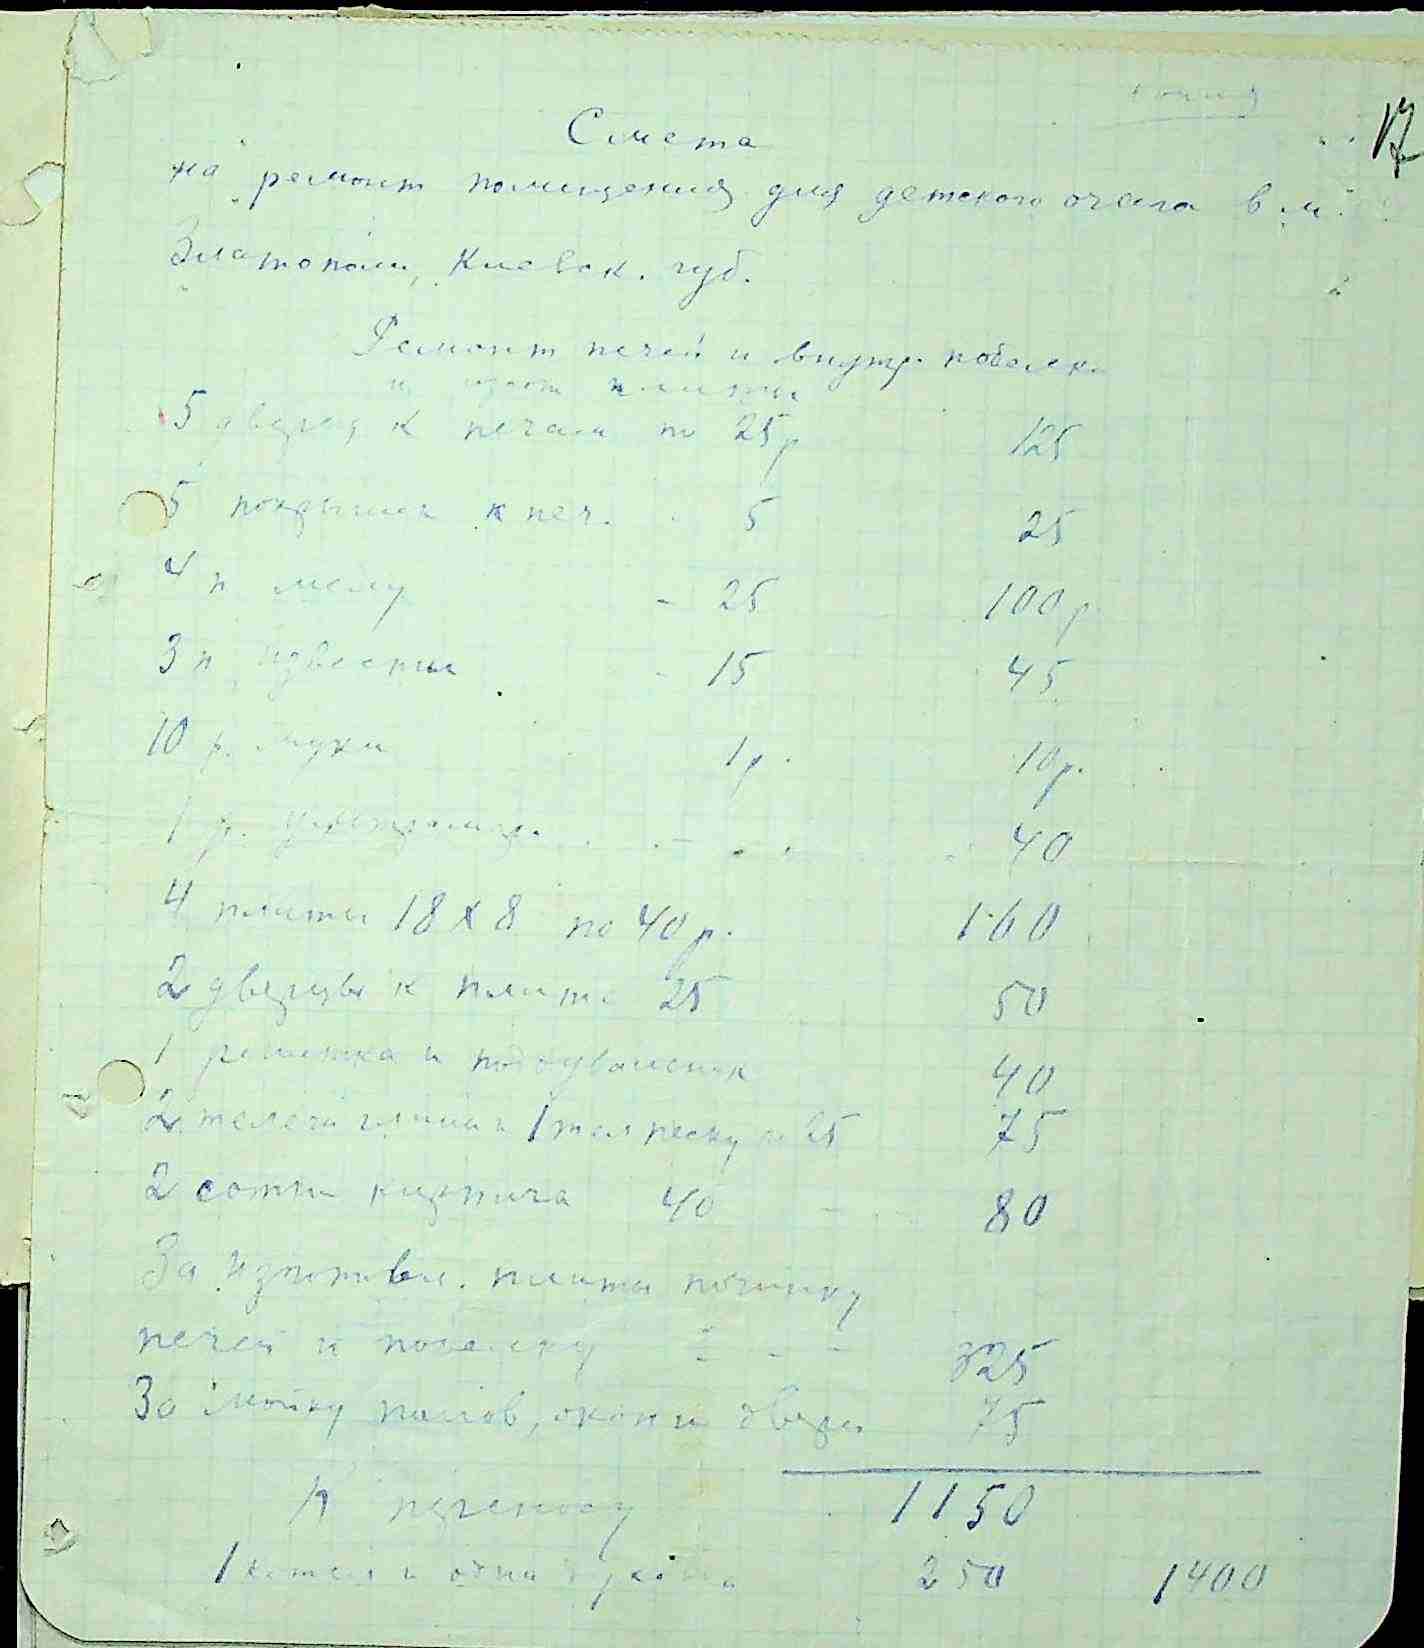 копия
17
Смета
на ремонт помещения для детского очага в м.
Златополи, Киевск. губ.
Ремонт печей и внутр. побелка
и плиты
5 дверец к печам по 25р 125
5 покрышек к печ. 5 25
4 п мелу - 25 100р.
3 п извести - 15 45
10 ф. муки 1р. 10р.
1 ф. ультрамар. - 40
4 плиты 18 х 8 по 40р. 160
2 дверцы к плите 25 50
1 решетка и поддувальник 40
2 телеги глины и 1 тел песку по 25 75
2 сотни кирпича 40 80
За изготовл. плиты починку
печей и побелку - - - 325
За мойку полов, окон и двери 75
К переносу 1150
1 котел и одна 250 1400